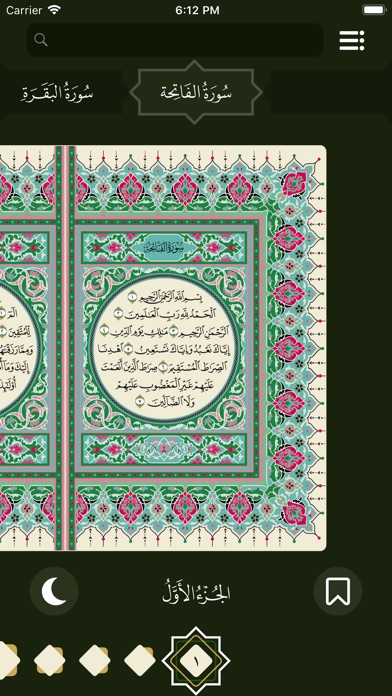 Carrier 6:12 PM
سُورَةُ الفَاتِحة
سُورَةُ البَقَرَةِ
سُورَةُ الفَاتِحَةِ
بِسْمِ اللَّهِ الرَّحْمَٰنِ الرَّحِيمِ ١
الْحَمْدُ لِلَّهِ رَبِّ الْعَالَمِينَ ٢
الرَّحْمَٰنِ الرَّحِيمِ ٣ مَالِكِ يَوْمِ الدِّينِ ٤
إِيَّاكَ نَعْبُدُ وَإِيَّاكَ نَسْتَعِينُ ٥ اهْدِنَا
الصِّرَاطَ الْمُسْتَقِيمَ ٦ صِرَاطَ الَّذِينَ أَنْعَمْتَ
عَلَيْهِمْ غَيْرِ الْمَغْضُوبِ عَلَيْهِمْ
وَلَا الضَّالِّينَ ٧
الجُزْءُ الأَوَّلُ
١